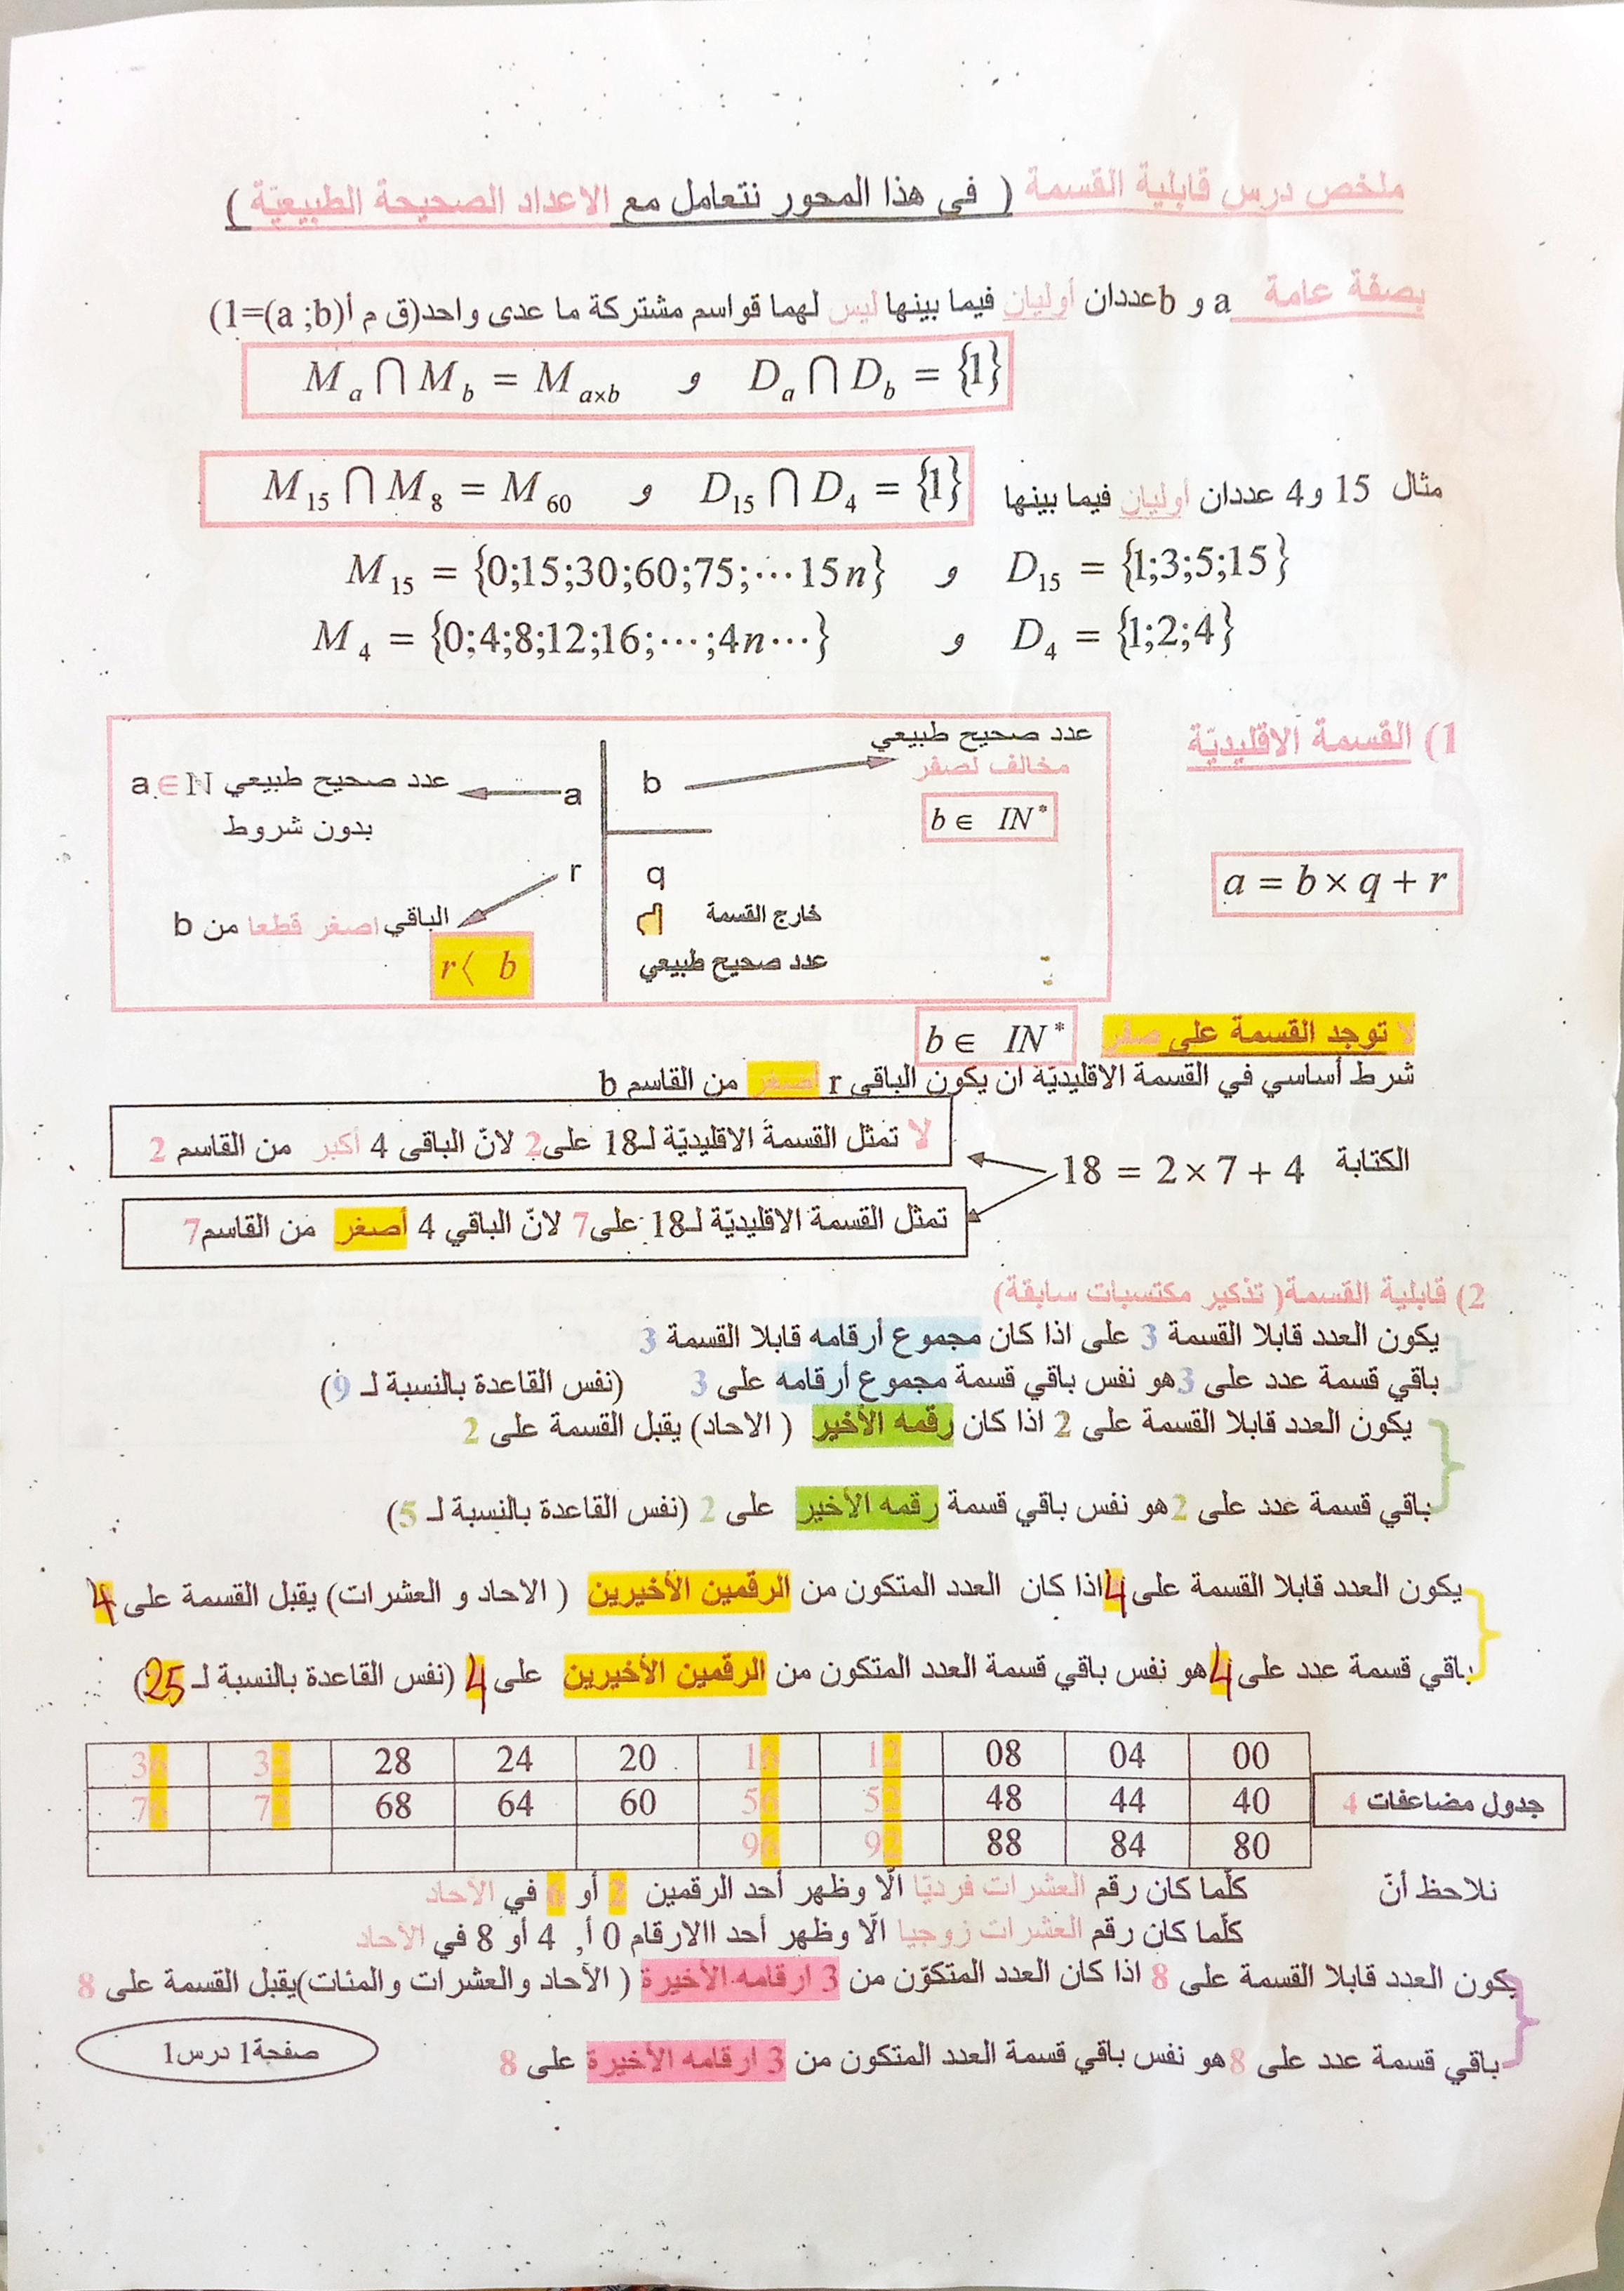 ملخص درس قابلية القسمة ( في هذا المحور نتعامل مع الاعداد الصحيحة الطبيعيّة )
بصفة عامة a و b عددان أوليان فيما بينها ليس لهما قواسم مشتركة ما عدى واحد(ق م أ(a ;b)=1)
M a ⋂ M b = M a×b و D a ⋂ D b = {1}
مثال 15 و4 عددان أوليان فيما بينها M 15 ⋂ M 8 = M 60 و D 15 ⋂ D 4 = {1}
M 15 = {0;15;30;60;75;⋯15n} و D 15 = {1;3;5;15}
M 4 = {0;4;8;12;16;⋯;4n⋯} و D 4 = {1;2;4}
1) القسمة الاقليديّة
عدد صحيح طبيعي
مخالف لصفر
b ∈ IN*
b
a
عدد صحيح طبيعي a∈N
بدون شروط
a = b × q + r
r
q
الباقي اصغر قطعا من b
r〈 b
خارج القسمة
عدد صحيح طبيعي
لا توجد القسمة على صفر b ∈ IN*
شرط أساسي في القسمة الاقليديّة ان يكون الباقى r أصغر من القاسم b
لا تمثل القسمة الاقليديّة لـ18 على2 لانّ الباقى 4 أكبر من القاسم 2
الكتابة 18 = 2 × 7 + 4
تمثل القسمة الاقليديّة لـ18 على7 لانّ الباقي 4 أصغر من القاسم7
2) قابلية القسمة( تذكير مكتسبات سابقة)
يكون العدد قابلا القسمة 3 على اذا كان مجموع أرقامه قابلا القسمة 3
باقي قسمة عدد على 3هو نفس باقي قسمة مجموع أرقامه على 3 (نفس القاعدة بالنسبة لـ 9)
يكون العدد قابلا القسمة على 2 اذا كان رقمه الأخير ( الاحاد) يقبل القسمة على 2
باقي قسمة عدد على 2هو نفس باقي قسمة رقمه الأخير على 2 (نفس القاعدة بالنسبة لـ 5)
يكون العدد قابلا القسمة على 4 اذا كان العدد المتكون من الرقمين الأخيرين ( الاحاد و العشرات) يقبل القسمة على 4
باقي قسمة عدد على 4 هو نفس باقي قسمة العدد المتكون من الرقمين الأخيرين على 4 (نفس القاعدة بالنسبة لـ 25)
36 32 28 24 20 16 12 08 04 00
76 72 68 64 60 56 52 48 44 40
96 92 88 84 80
جدول مضاعفات 4
نلاحظ أنّ كلّما كان رقم العشرات فرديّا الّا وظهر أحد الرقمين 2 أو 6 في الآحاد
كلّما كان رقم العشرات زوجيا الّا وظهر أحد االارقام 0 أ, 4 أو 8 في الآحاد
يكون العدد قابلا القسمة على 8 اذا كان العدد المتكوّن من 3 ارقامه الأخيرة ( الآحاد والعشرات والمئات)يقبل القسمة على 8
باقي قسمة عدد على 8هو نفس باقي قسمة العدد المتكون من 3 ارقامه الأخيرة على 8
صفحة1 درس1